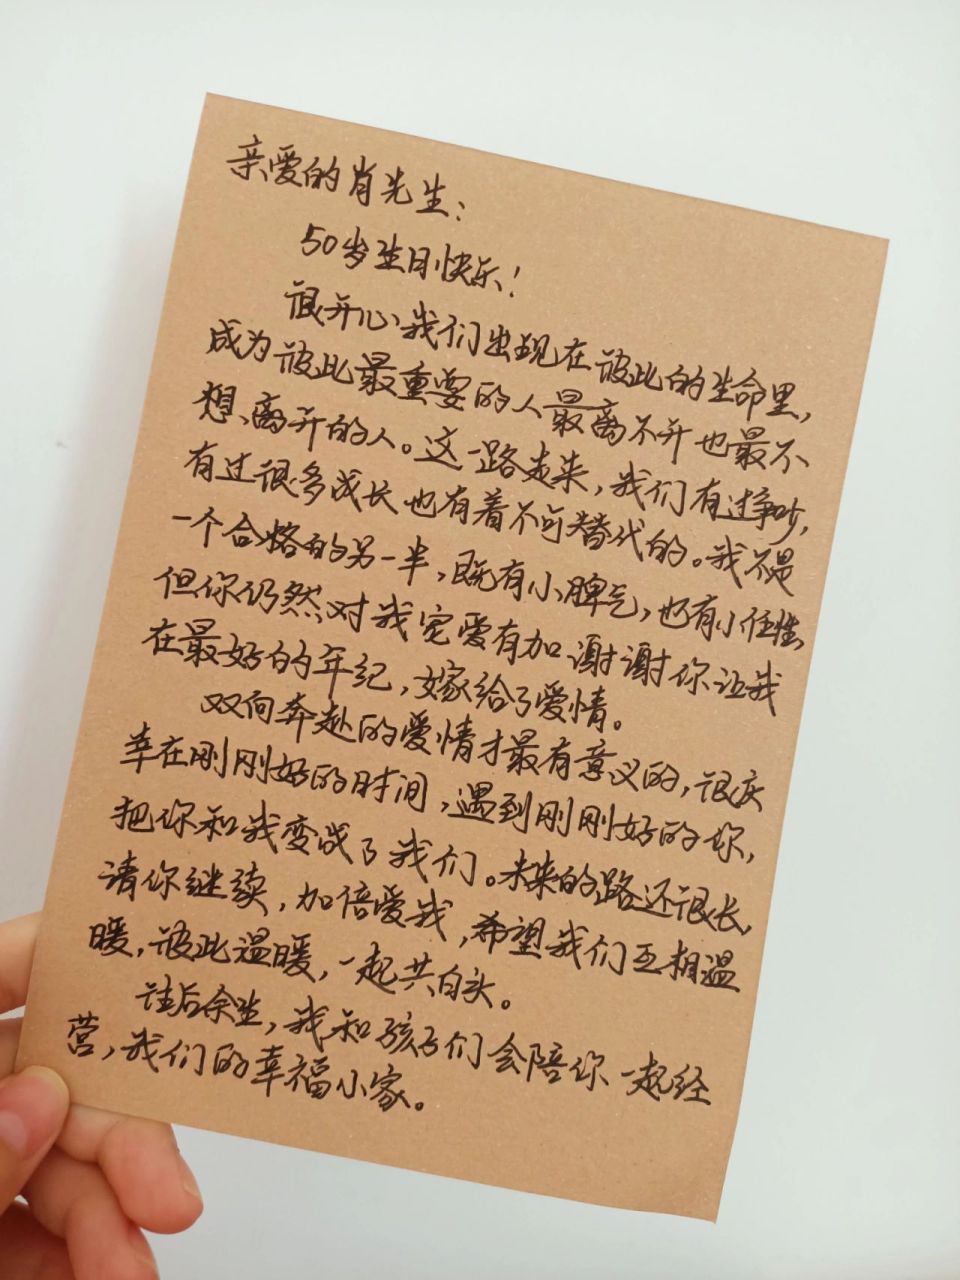 亲爱的肖先生：
50岁生日快乐！
很开心我们出现在彼此的生命里，
成为彼此最重要的人最离不开也最不
想离开的人。这一路走来，我们有过争吵，
有过很多成长也有着不可替代的。我不是
一个合格的另一半，既有小脾气，也有小任性，
但你仍然对我宠爱有加谢谢你让我
在最好的年纪，嫁给了爱情。
双向奔赴的爱情才最有意义的，很庆
幸在刚刚好的时间，遇到刚刚好的你，
把你和我变成了我们。未来的路还很长，
请你继续，加倍爱我，希望我们互相温
暖，彼此温暖，一起共白头。
往后余生，我和孩子们会陪你一起经
营，我们的幸福小家。